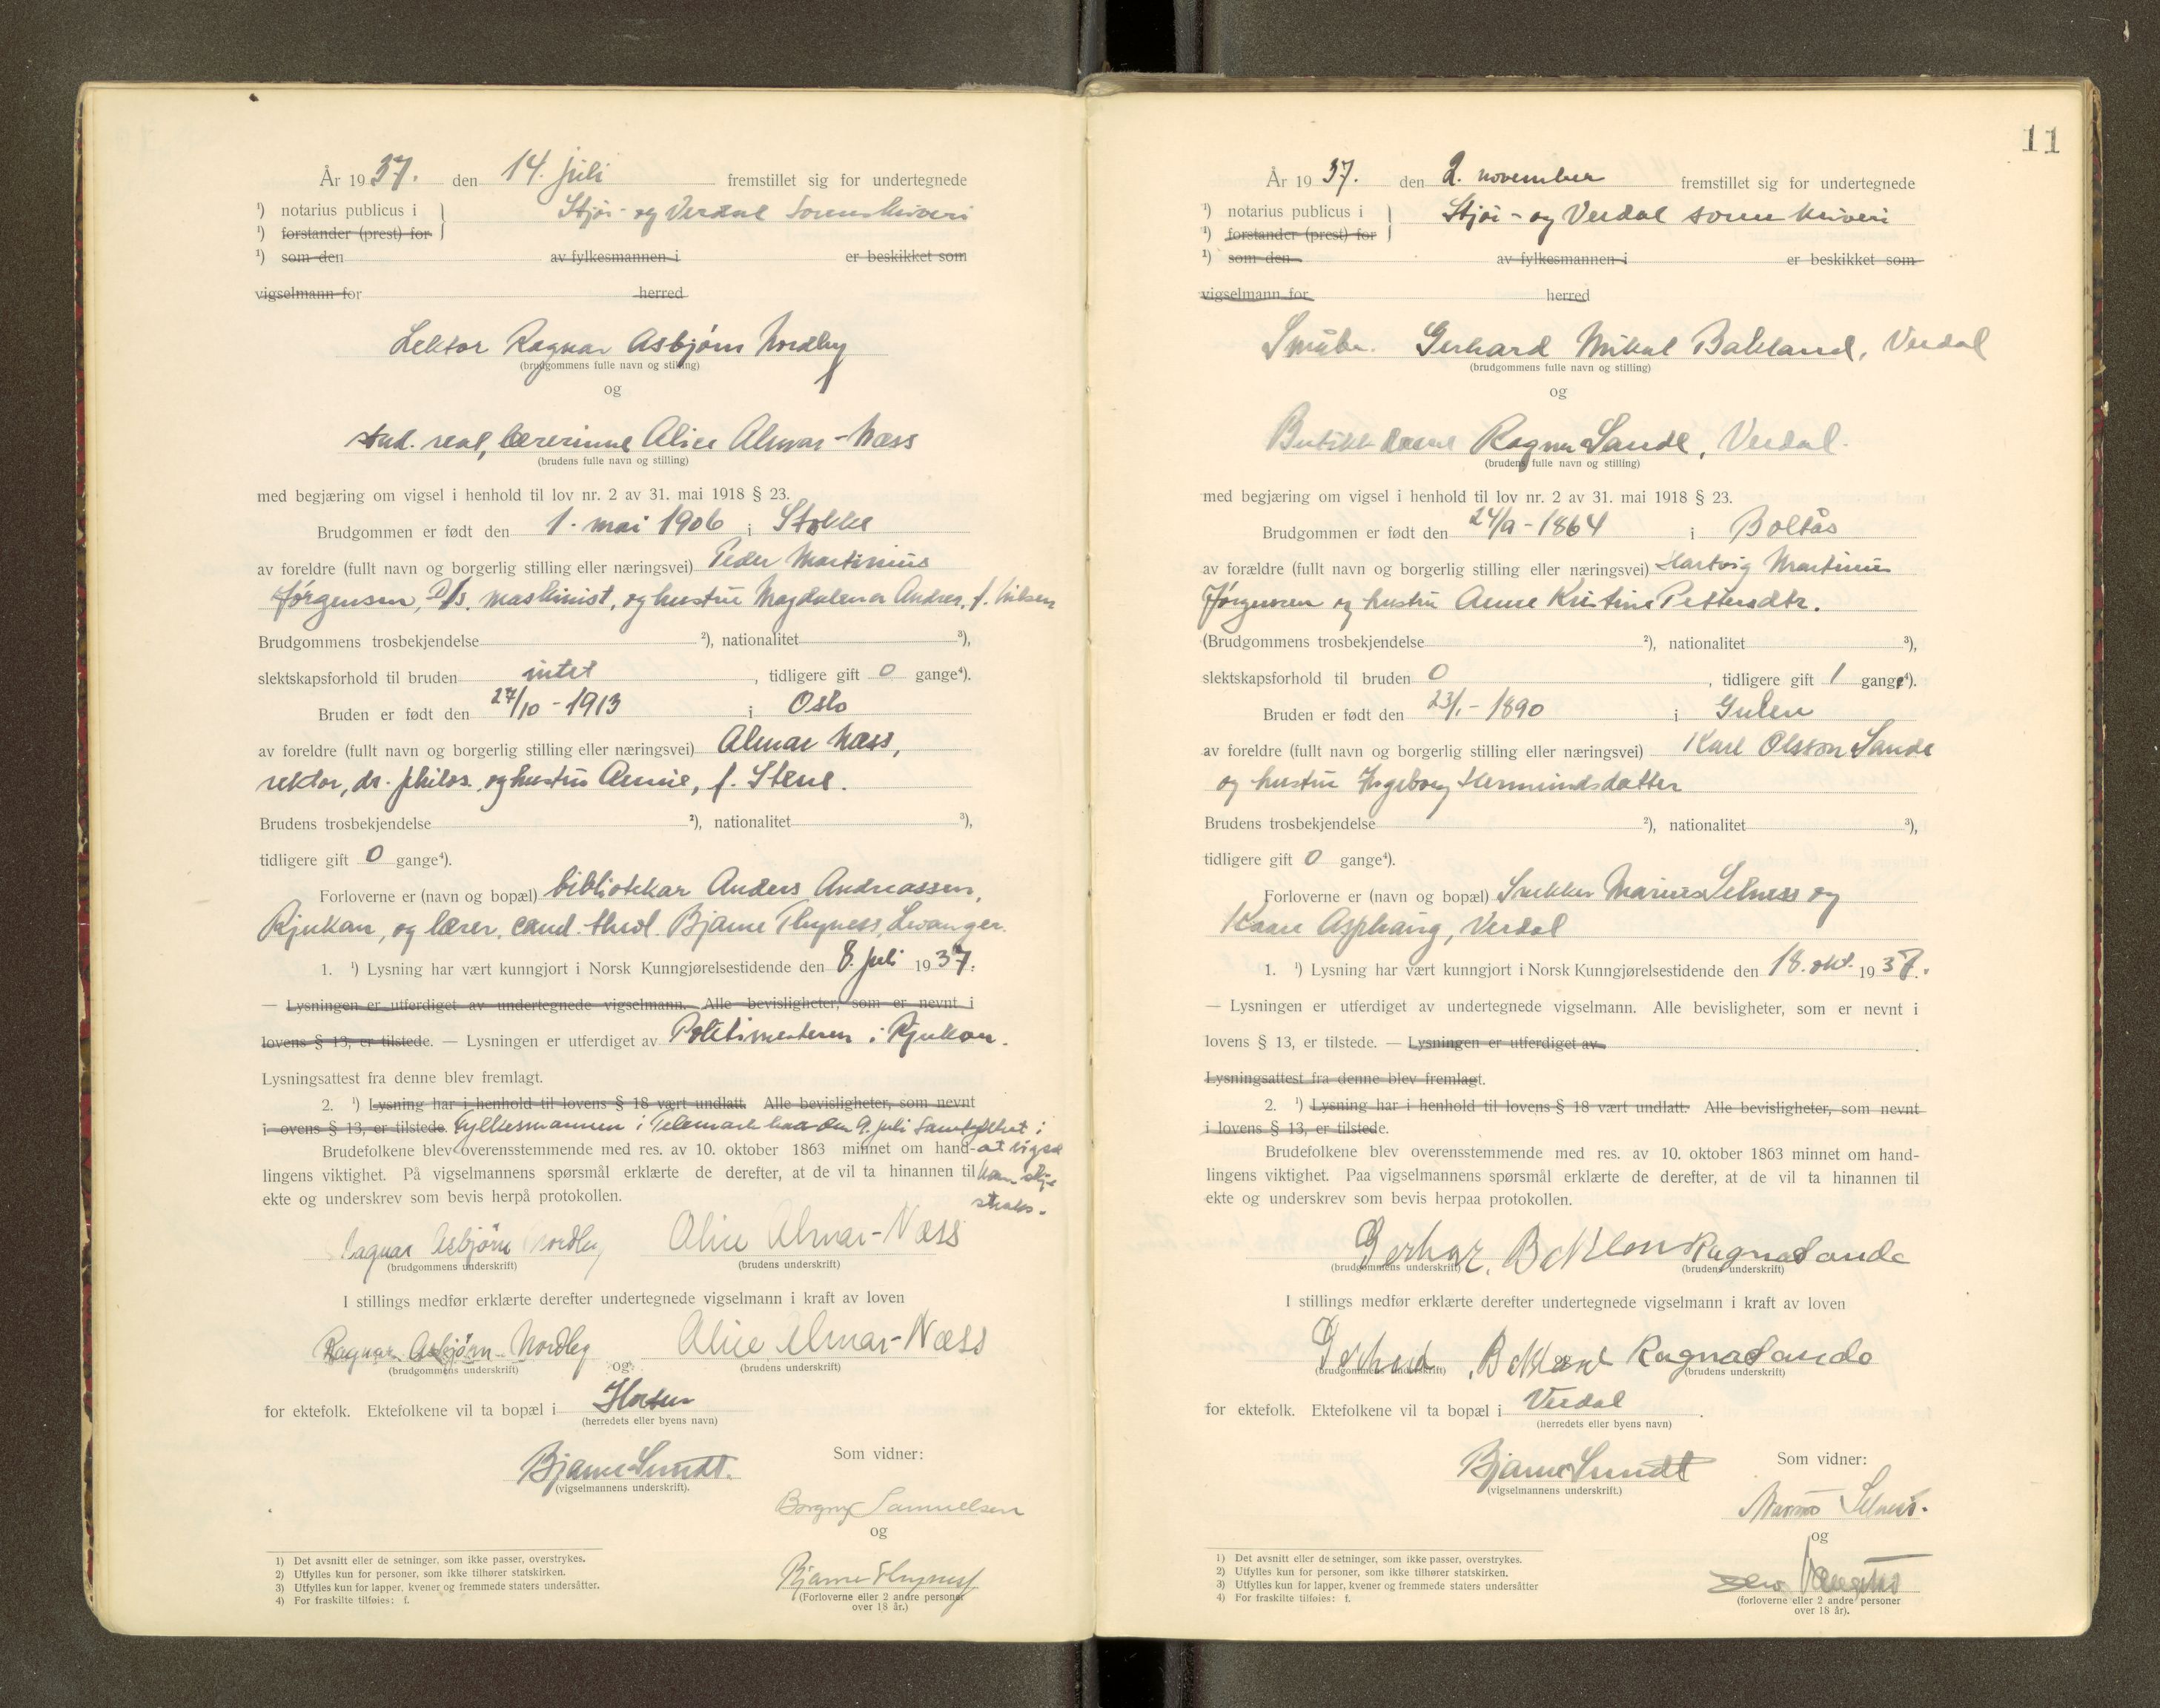 År 1937. den 14. juli fremstillet sig for undertegnede
¹) notarius publicus i Stjør- og Verdal Sorenskriveri
¹) forstander (prest) for
¹) som den av fylkesmannen i er beskikket som
vigselmann for herred
Lektor Ragnar Asbjørn Nordby
(brudgommens fulle navn og stilling)
og
stud. real, lærerinne Alice Almar-Næss
(brudens fulle navn og stilling)
med begjæring om vigsel i henhold til lov nr. 2 av 31. mai 1918 § 23.
Brudgommen er født den 1. mai 1906 i Stokke
av foreldre (fullt navn og borgerlig stilling eller næringsvei) Peder Martinius
Jørgensen, D/s. maskinist, og hustru Magdalena Andrea, f. Nilsen
Brudgommens trosbekjendelse ²), nationalitet ³),
slektskapsforhold til bruden intet, tidligere gift 0 gange⁴).
Bruden er født den 27/10 - 1913 i Oslo
av foreldre (fullt navn og borgerlig stilling eller næringsvei) Almar Næss,
rektor, dr. philos., og hustru Annie, f. Stene.
Brudens trosbekjendelse ²), nationalitet ³),
tidligere gift 0 gange⁴).
Forloverne er (navn og bopæl) bibliotekar Anders Andreassen,
Rjukan, og lærer, cand. theol. Bjarne Thyness, Levanger.
1. ¹) Lysning har vært kunngjort i Norsk Kunngjørelsestidende den 8. juli 1937.
— Lysningen er utferdiget av undertegnede vigselmann. Alle bevisligheter, som er nevnt i
lovens § 13, er tilstede. — Lysningen er utferdiget av Politimesteren i Rjukan.
Lysningsattest fra denne blev fremlagt.
2. ¹) Lysning har i henhold til lovens § 18 vært undlatt. Alle bevisligheter, som nevnt
i lovens § 13, er tilstede. Fylkesmannen i Telemark har den 9. juli samtykket i
at vigsel
kan skje
straks.
Brudefolkene blev overensstemmende med res. av 10. oktober 1863 minnet om hand-
lingens viktighet. På vigselmannens spørsmål erklærte de derefter, at de vil ta hinannen til
ekte og underskrev som bevis herpå protokollen.
Ragnar Asbjørn Nordby Alice Almar-Næss
(brudgommens underskrift) (brudens underskrift)
I stillings medfør erklærte derefter undertegnede vigselmann i kraft av loven
Ragnar Asbjørn Nordby og Alice Almar-Næss
(brudgommens underskrift) (brudens underskrift)
for ektefolk. Ektefolkene vil ta bopæl i Horten
(herredets eller byens navn)
Bjarne Sundt.
(vigselmannens underskrift).
Som vidner:
Borgny Samuelsen
og
Bjarne Thyness
(Forloverne eller 2 andre personer
over 18 år.)
1) Det avsnitt eller de setninger, som ikke passer, overstrykes.
2) Utfylles kun for personer, som ikke tilhører statskirken.
3) Utfylles kun for lapper, kvener og fremmede staters undersåtter.
4) For fraskilte tilføies: f.
11
År 1937. den 2. november fremstillet sig for undertegnede
¹) notarius publicus i Stjør- og Verdal sorenskriveri
¹) forstander (prest) for
¹) som den av fylkesmannen i er beskikket som
vigselmann for herred
Gerhard Mikal Bakland, Verdal
(brudgommens fulle navn og stilling)
og
Butikkdame Ragna Sande, Verdal.
(brudens fulle navn og stilling)
med begjæring om vigsel i henhold til lov nr. 2 av 31. mai 1918 § 23.
Brudgommen er født den 24/9 - 1864 i Boltås
av forældre (fullt navn og borgerlig stilling eller næringsvei) Hartvig Martinus
Jørgensen og hustru Anne Kristine Pettersdtr.
(Brudgommens trosbekjendelse ²), nationalitet ³),
slektskapsforhold til bruden 0, tidligere gift 1 gange⁴).
Bruden er født den 23/1 - 1890 i Gulen
av foreldre (fullt navn og borgerlig stilling eller næringsvei) Karl Olsson Sande
og hustru Ingeborg Hermundsdatter
Brudens trosbekjendelse ²), nationalitet ³),
tidligere gift 0 gange⁴).
Forloverne er (navn og bopæl) Snekker Marius Selness og
Kaare Asphaug, Verdal
1. ¹) Lysning har vært kunngjort i Norsk Kunngjørelsestidende den 18. okt. 1937.
— Lysningen er utferdiget av undertegnede vigselmann. Alle bevisligheter, som er nevnt i
lovens § 13, er tilstede. — Lysningen er utferdiget av
Lysningsattest fra denne blev fremlagt.
2. ¹) Lysning har i henhold til lovens § 18 vært undlatt. Alle bevisligheter, som nevnt
i lovens § 13, er tilstede.
Brudefolkene blev overensstemmende med res. av 10. oktober 1863 minnet om hand-
lingens viktighet. Paa vigselmannens spørsmål erklærte de derefter, at de vil ta hinannen til
ekte og underskrev som bevis herpaa protokollen.
Ragna Sande
(brudgommens underskrift) (brudens underskrift)
I stillings medfør erklærte derefter undertegnede vigselmann i kraft av loven
Ragna Sande
(brudgommens underskrift) (brudens underskrift)
for ektefolk. Ektefolkene vil ta bopæl i Verdal
(herredets eller byens navn)
Bjarne Sundt
(vigselmannens underskrift.)
Som vidner:
Selness.
og
(forloverne eller 2 andre personer
over 18 år).
1) Det avsnitt eller de setninger, som ikke passer, overstrykes.
2) Utfylles kun for personer, som ikke tilhører statskirken.
3) Utfylles kun for lapper, kvener og fremmede staters undersåtter
4) For fraskilte tilføies: f.